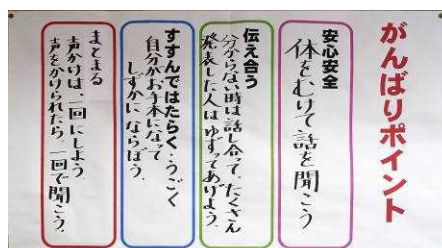 がんばりポイント
安心安全
体をむけて話を聞こう
伝え合う
分からない時は話し合って、たくさん
発表した人はゆずってあげよう。
すすんではたらく・うごく
自分がお手本になって
しずかに ならぼう。
まとまる
声かけは、一回にしよう。
声をかけられたら、一回で聞こう。